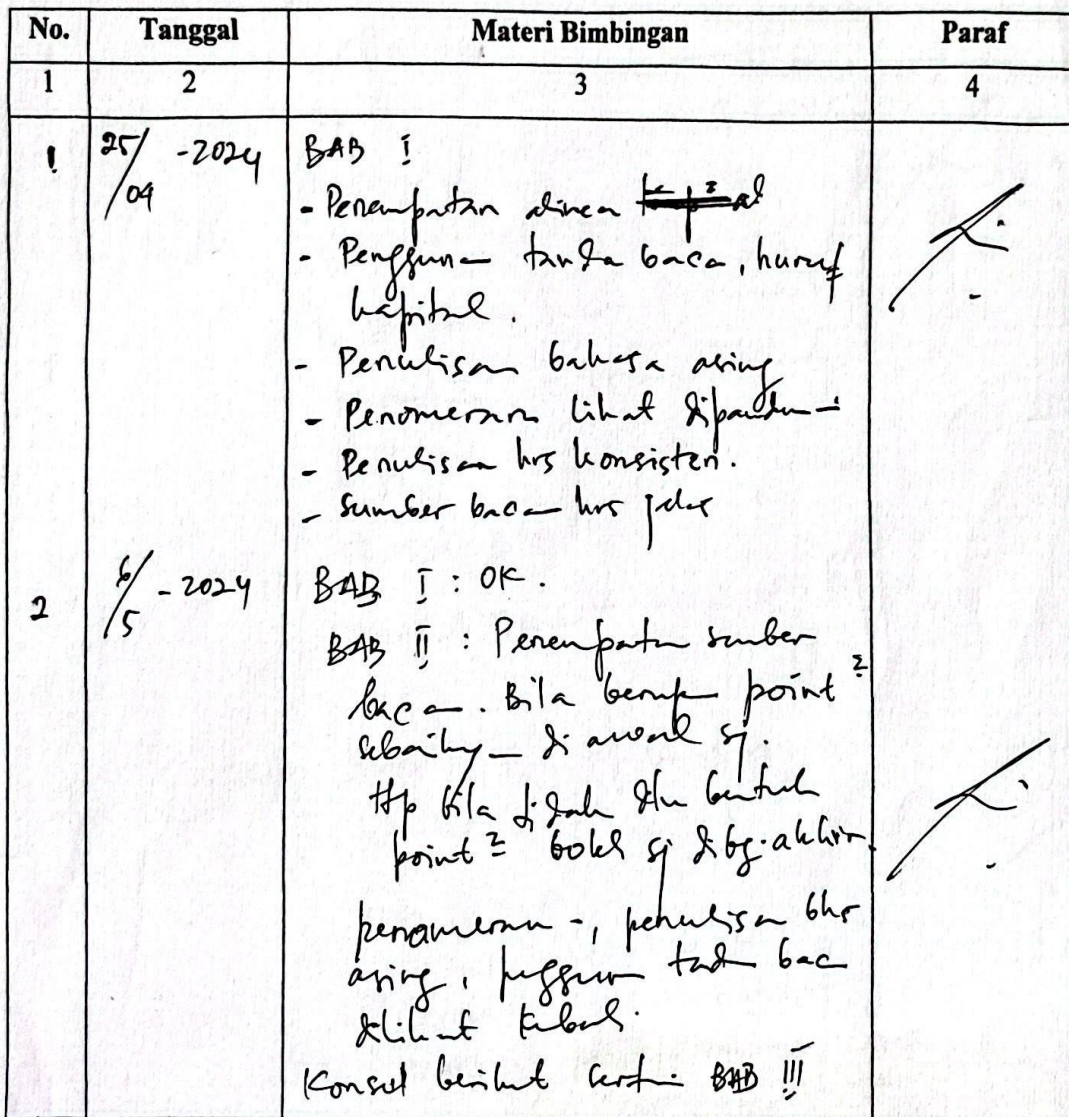 No. Tanggal Materi Bimbingan Paraf
1 2 3 4
1 25/04 -2024 BAB I
- Penempatan alinea
- Penggunaan tanda baca, huruf
kapital.
- Penulisan bahasa asing
- Penomeran lihat dipanduan
- Penulisan hrs konsisten.
- Sumber bacaan hrs jelas
2 6/5 - 2024 BAB I : OK.
BAB II : Penempatan sumber
bacaan. Bila berupa point 2
sebaiknya di awal sj.
ttp bila tidak dlm bentuk
point 2 boleh sj dibg. akhir.
penomeran, penulisan bhs
asing, penggunaan tanda baca
dilihat kembali.
Konsul berikut BAB III